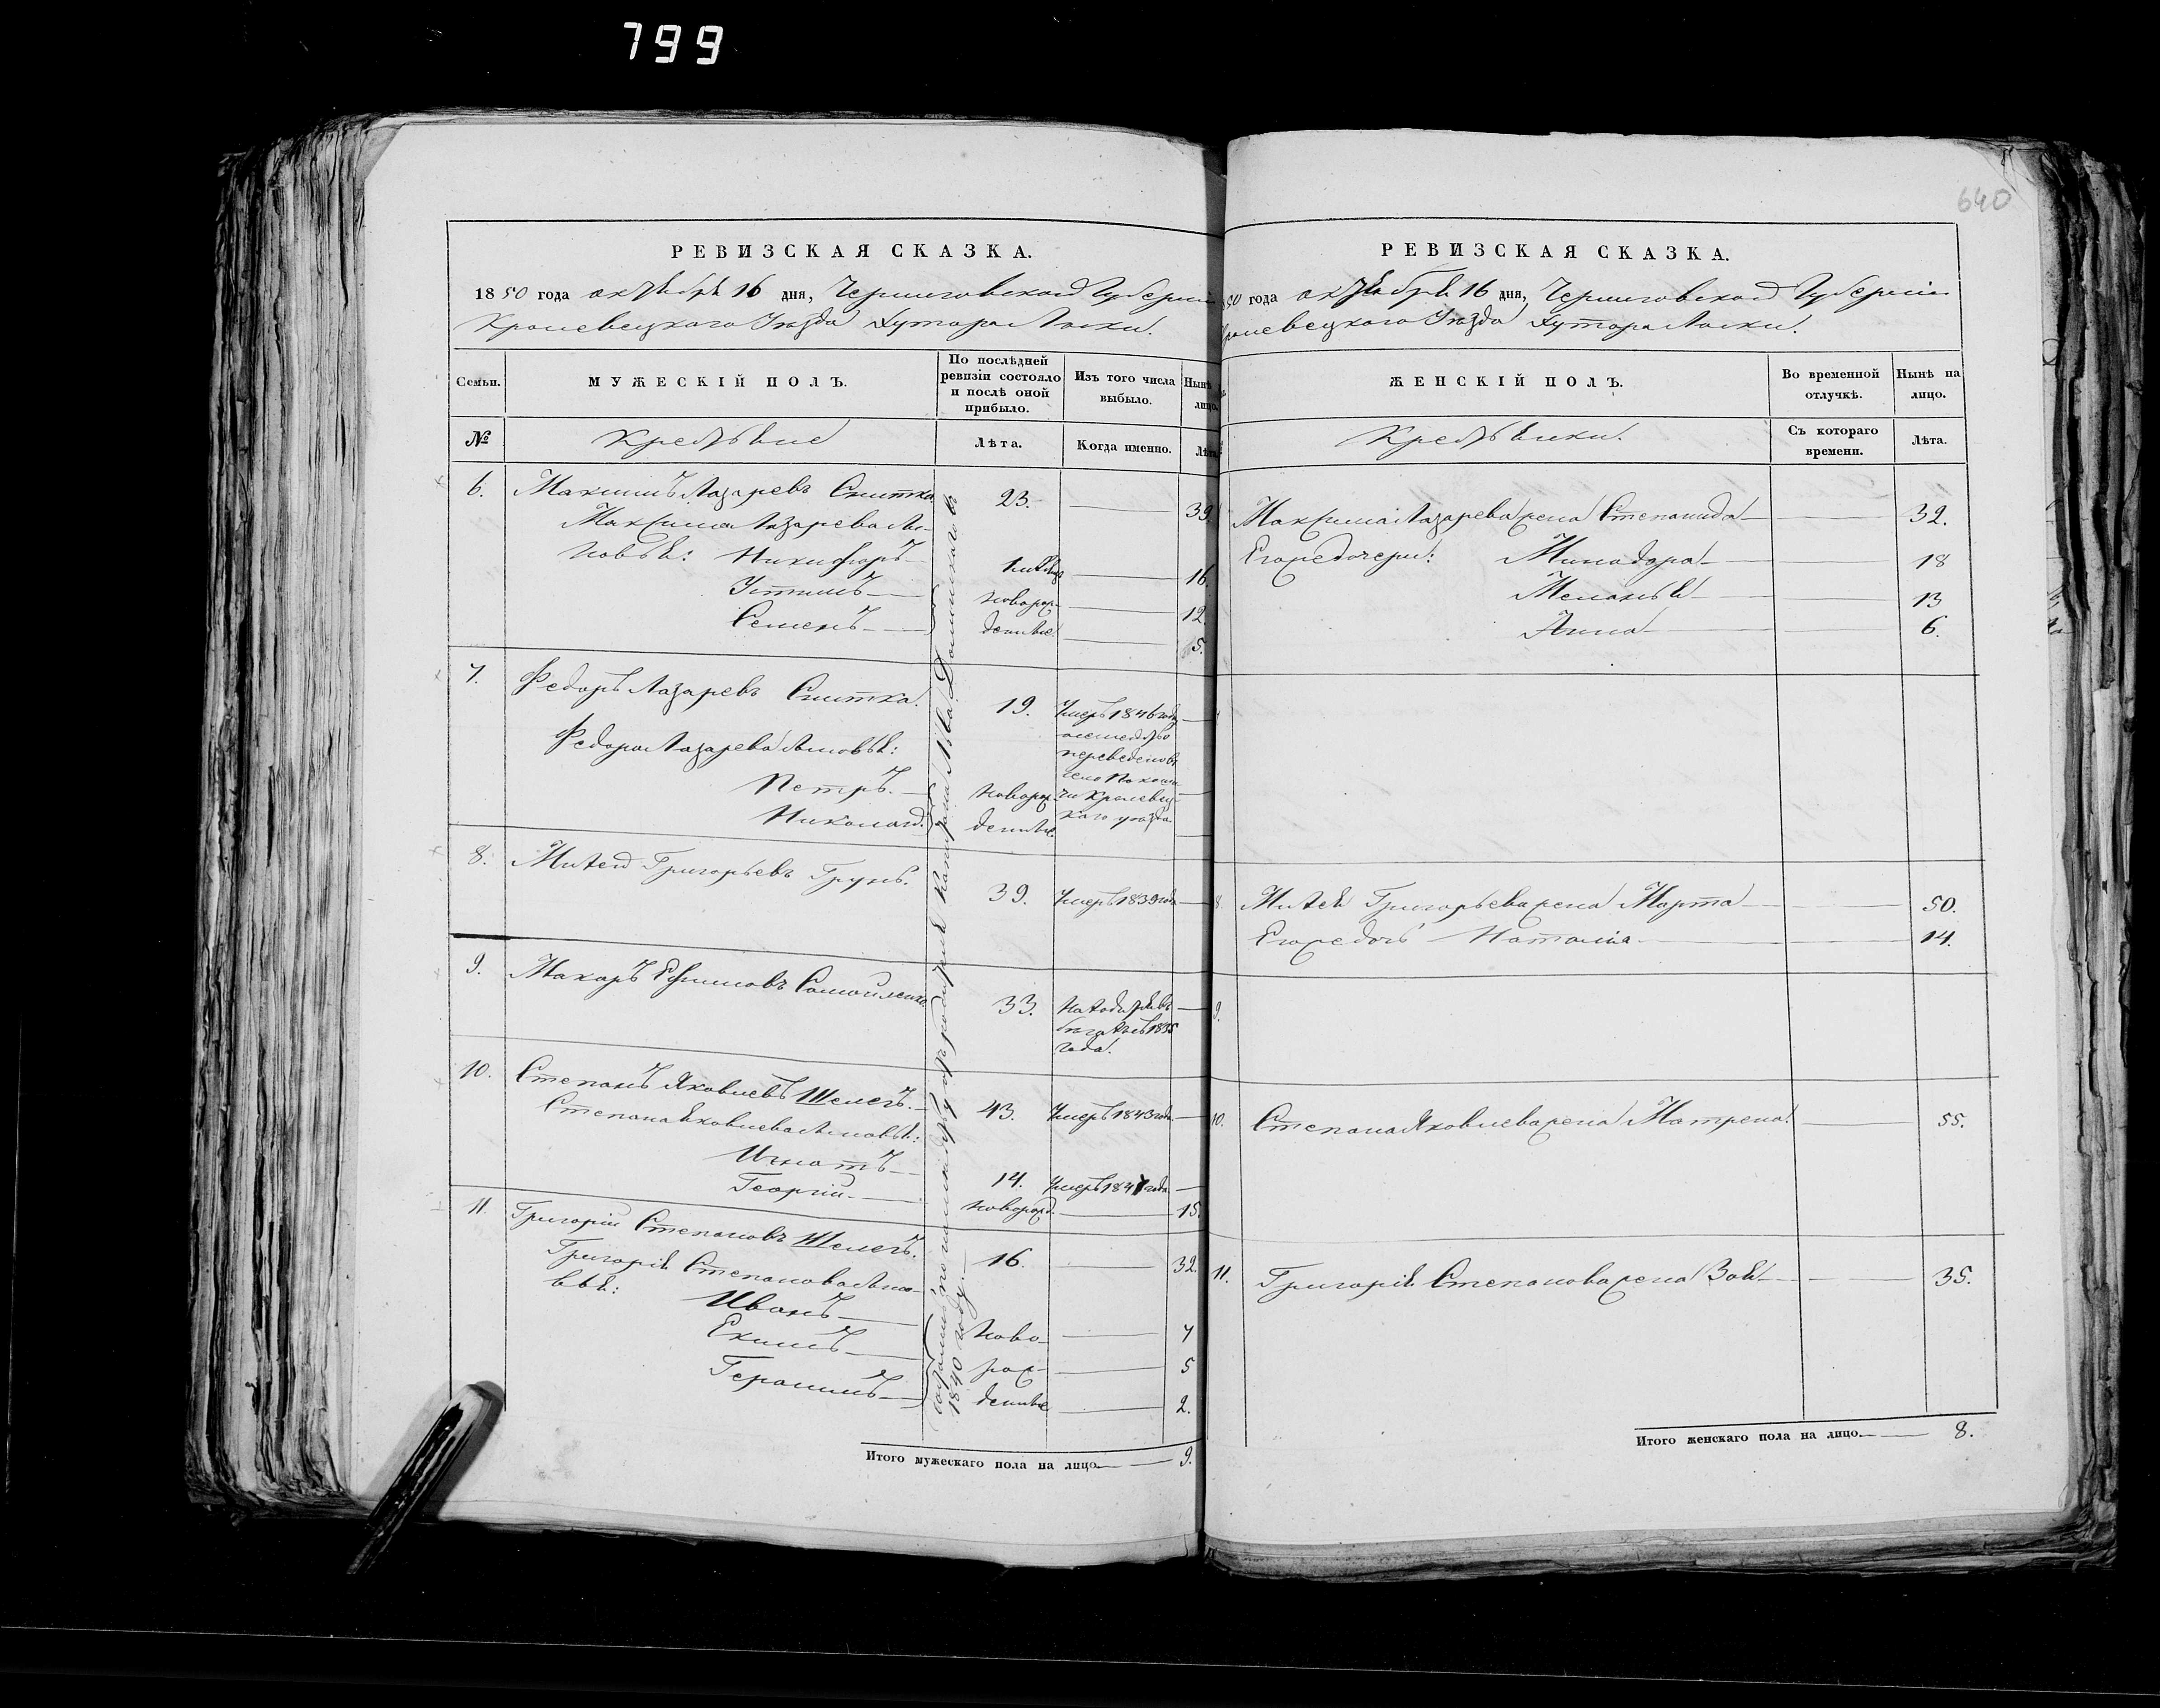 799
640
РЕВИЗСКАЯ СКАЗКА.
1850 года октября 16 дня, Черниговской Губерніи
Кролевецкого Уѣзда Хутора Лоски.
Семьи.
МУЖЕСКІЙ ПОЛЪ.
По послѣдней ревизіи состояло и послѣ оной прибыло.
Изъ того числа выбыло.
Нынѣ лицо.
№
Крестьяне
Лѣта.
Когда именно.
Лѣта
6. Максимъ Лазаревъ Снитка 23. 39.
Максима Лазарева сы-
новья: Никифоръ 16.
Устимъ новорож- 12.
Семенъ денные 5.
7. Федоръ Лазаревъ Снитка. 19. Умеръ 1846 года
Федора Лазарева сыновья:
Петръ. новорож-
Николай. денные.
переведены въ
село
Кролевец-
каго уѣзда
8. Михей Григорьевъ Грунь. 39. Умеръ 1839 года
9. Макаръ Ефимовъ Самойленко 33. Находится въ
бѣгахъ съ 1835
года.
10. Степанъ Яковлевъ Шелегъ. 43. Умеръ 1843 года
Степана Яковлева сыновья:
Игнатъ 14. Умеръ 1841 года
Георгій новорожд. 15.
11. Григорій Степановъ Шелегъ. 16. 32.
Григорія Степанова сыно-
вья:
Иванъ ново- 7
Екимъ рож- 5
Герасимъ денные 2.
1840 году.
Итого мужескаго пола на лицо 9.
РЕВИЗСКАЯ СКАЗКА.
50 года октября 16 дня, Черниговской Губерніи
ролевецкого Уѣзда Хутора Лоски.
ЖЕНСКІЙ ПОЛЪ.
Во временной отлучкѣ.
Нынѣ на лицо.
Крестьянки.
Съ котораго времени.
Лѣта.
Максима Лазарева жена Степанида 32.
Его же дочери: Минадора 18
Меланья 13
Анна 6.
8. Михея Григорьева жена Марта 50.
Его же дочь Наталія 14.
9.
10. Степана Яковлева жена Матрена. 55.
11. Григорія Степанова жена Зоя 35.
Итого женскаго пола на лицо 8.